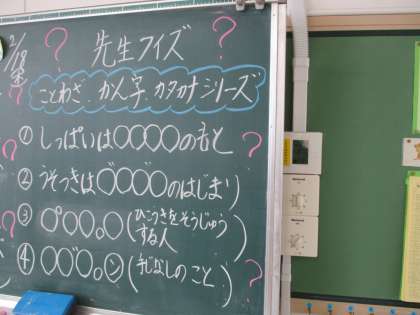 2/18
㊍
先生クイズ
ことわざ、かん字、カタカナシリーズ
① しっぱいは〇〇〇〇の もと
② うそつきは〇゛〇゛〇〇のはじまり
③ 〇゜〇〇。〇(ひこうきをそうじゅうする人)
④ 〇〇゛〇。ン(手じなしのこと)